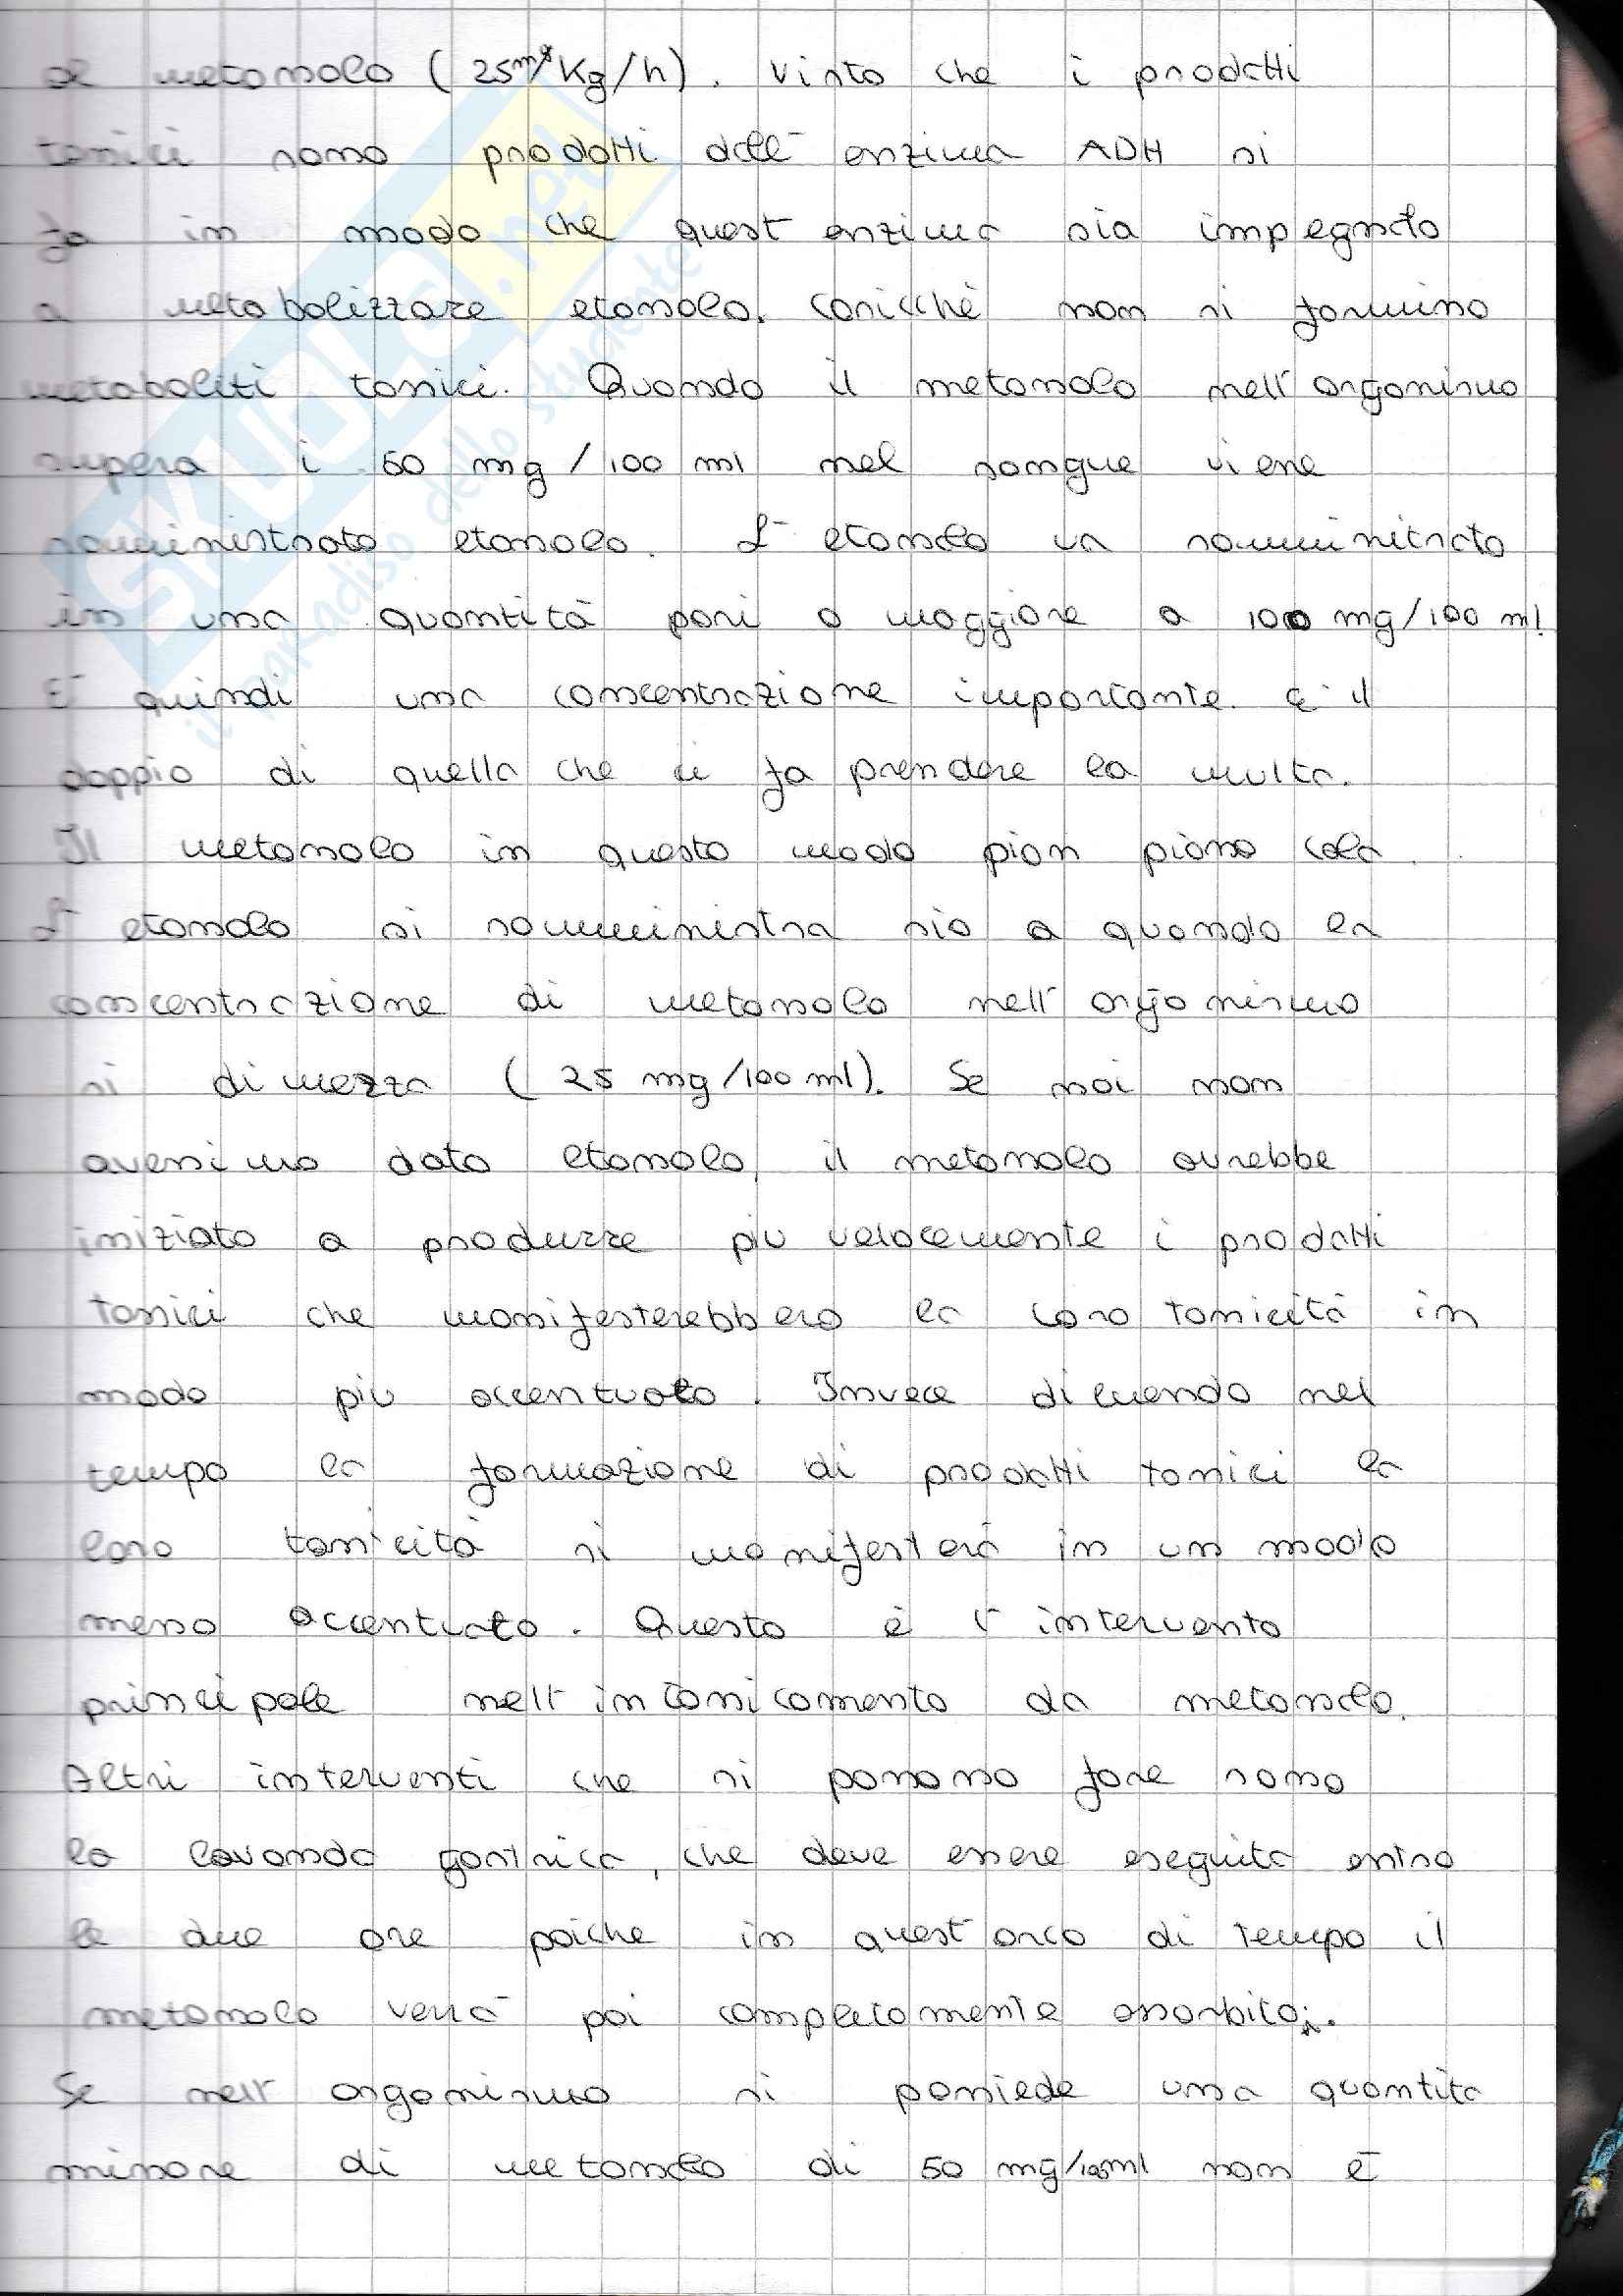 al metanolo (25mg/Kg/h). Visto che i prodotti
tossici sono prodotti dall' enzima ADH si
fa in modo che quest enzima sia impegnato
a metabolizzare etanolo. Cosicchè non si formino
metaboliti tossici. Quando il metanolo nell' organismo
supera i 50 mg/100 ml nel sangue viene
somministrato etanolo. L' etanolo va somminitrato
in una quantità pari o maggiore a 100 mg/100 ml.
E' quindi una concentrazione importante. è il
doppio di quella che ci fa prendere la multa.
Il metanolo in questo modo pian piano cala.
L' etanolo si somministra sio a quando la
concentrazione di metanolo nell' organismo
si dimezza (25 mg/100 ml). Se noi non
avessimo dato etanolo, il metanolo avrebbe
iniziato a produrre più velocemente i prodotti
tossici che manifesterebbero la loro tossicità in
modo più accentuato. Invece diluendo nel
tempo la formazione di prodotti tossici la
loro tossicità si manifesterà in un modo
meno accentuato. Questo è l' intervento
principale nell' intossicamento da metanolo.
Altri interventi che si possono fare sono
la lavanda gastrica, che deve essere eseguita entro
le due ore poiche in quest' arco di tempo il
metanolo verrà poi completamente assorbito.
Se nell' organismo si possiede una quantità
minore di metanolo di 50 mg/100ml non è
SKUOLA.net
il paradiso dello studente